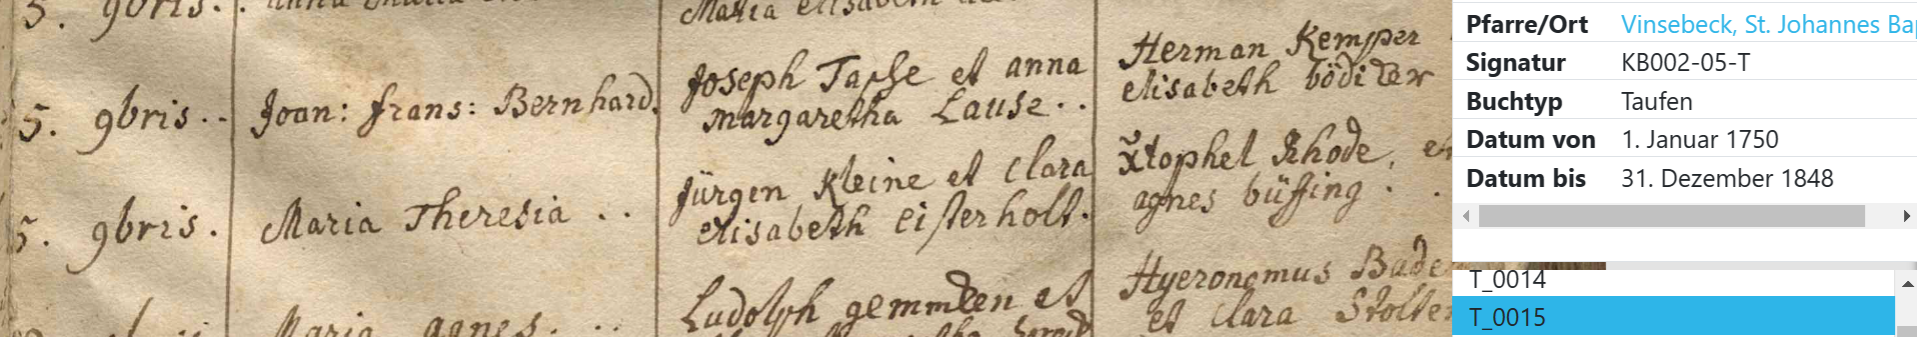 5. 9bris.
Maria Elisabeth
5. 9bris. . .
Joan: frans: Bernhard.
Joseph Tasche et anna
margaretha Lause . .
Herman Kemper
elisabeth bödiker
5. 9bris.
Maria Theresia . .
Jürgen Kleine et Clara
elisabeth Eisterholt.
Xtophel Rhode, et
agnes büssing .
Maria agnes. . .
Ludolph gemmeken et
Hyeronomus Bade
et Clara Stolte
Pfarre/Ort Vinsebeck, St. Johannes Ba
Signatur KB002-05-T
Buchtyp Taufen
Datum von 1. Januar 1750
Datum bis 31. Dezember 1848
T_0014
T_0015